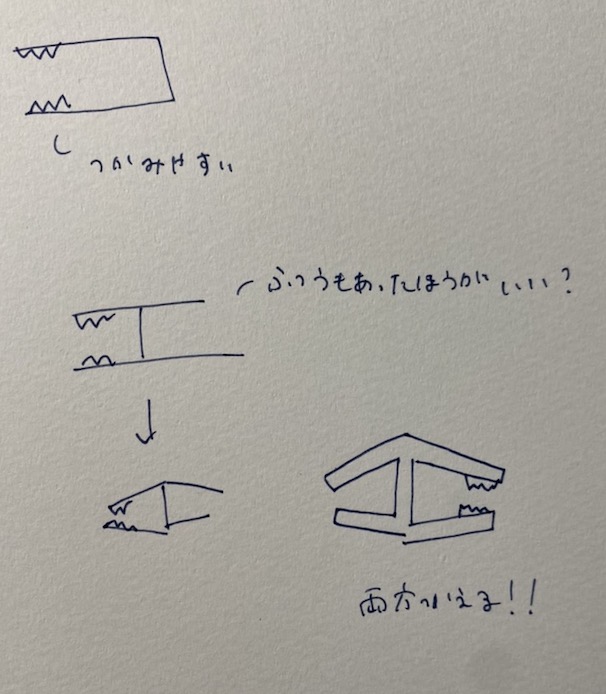 つかみやすい
ふつうもあったほうがいい?
両方つかえる!!